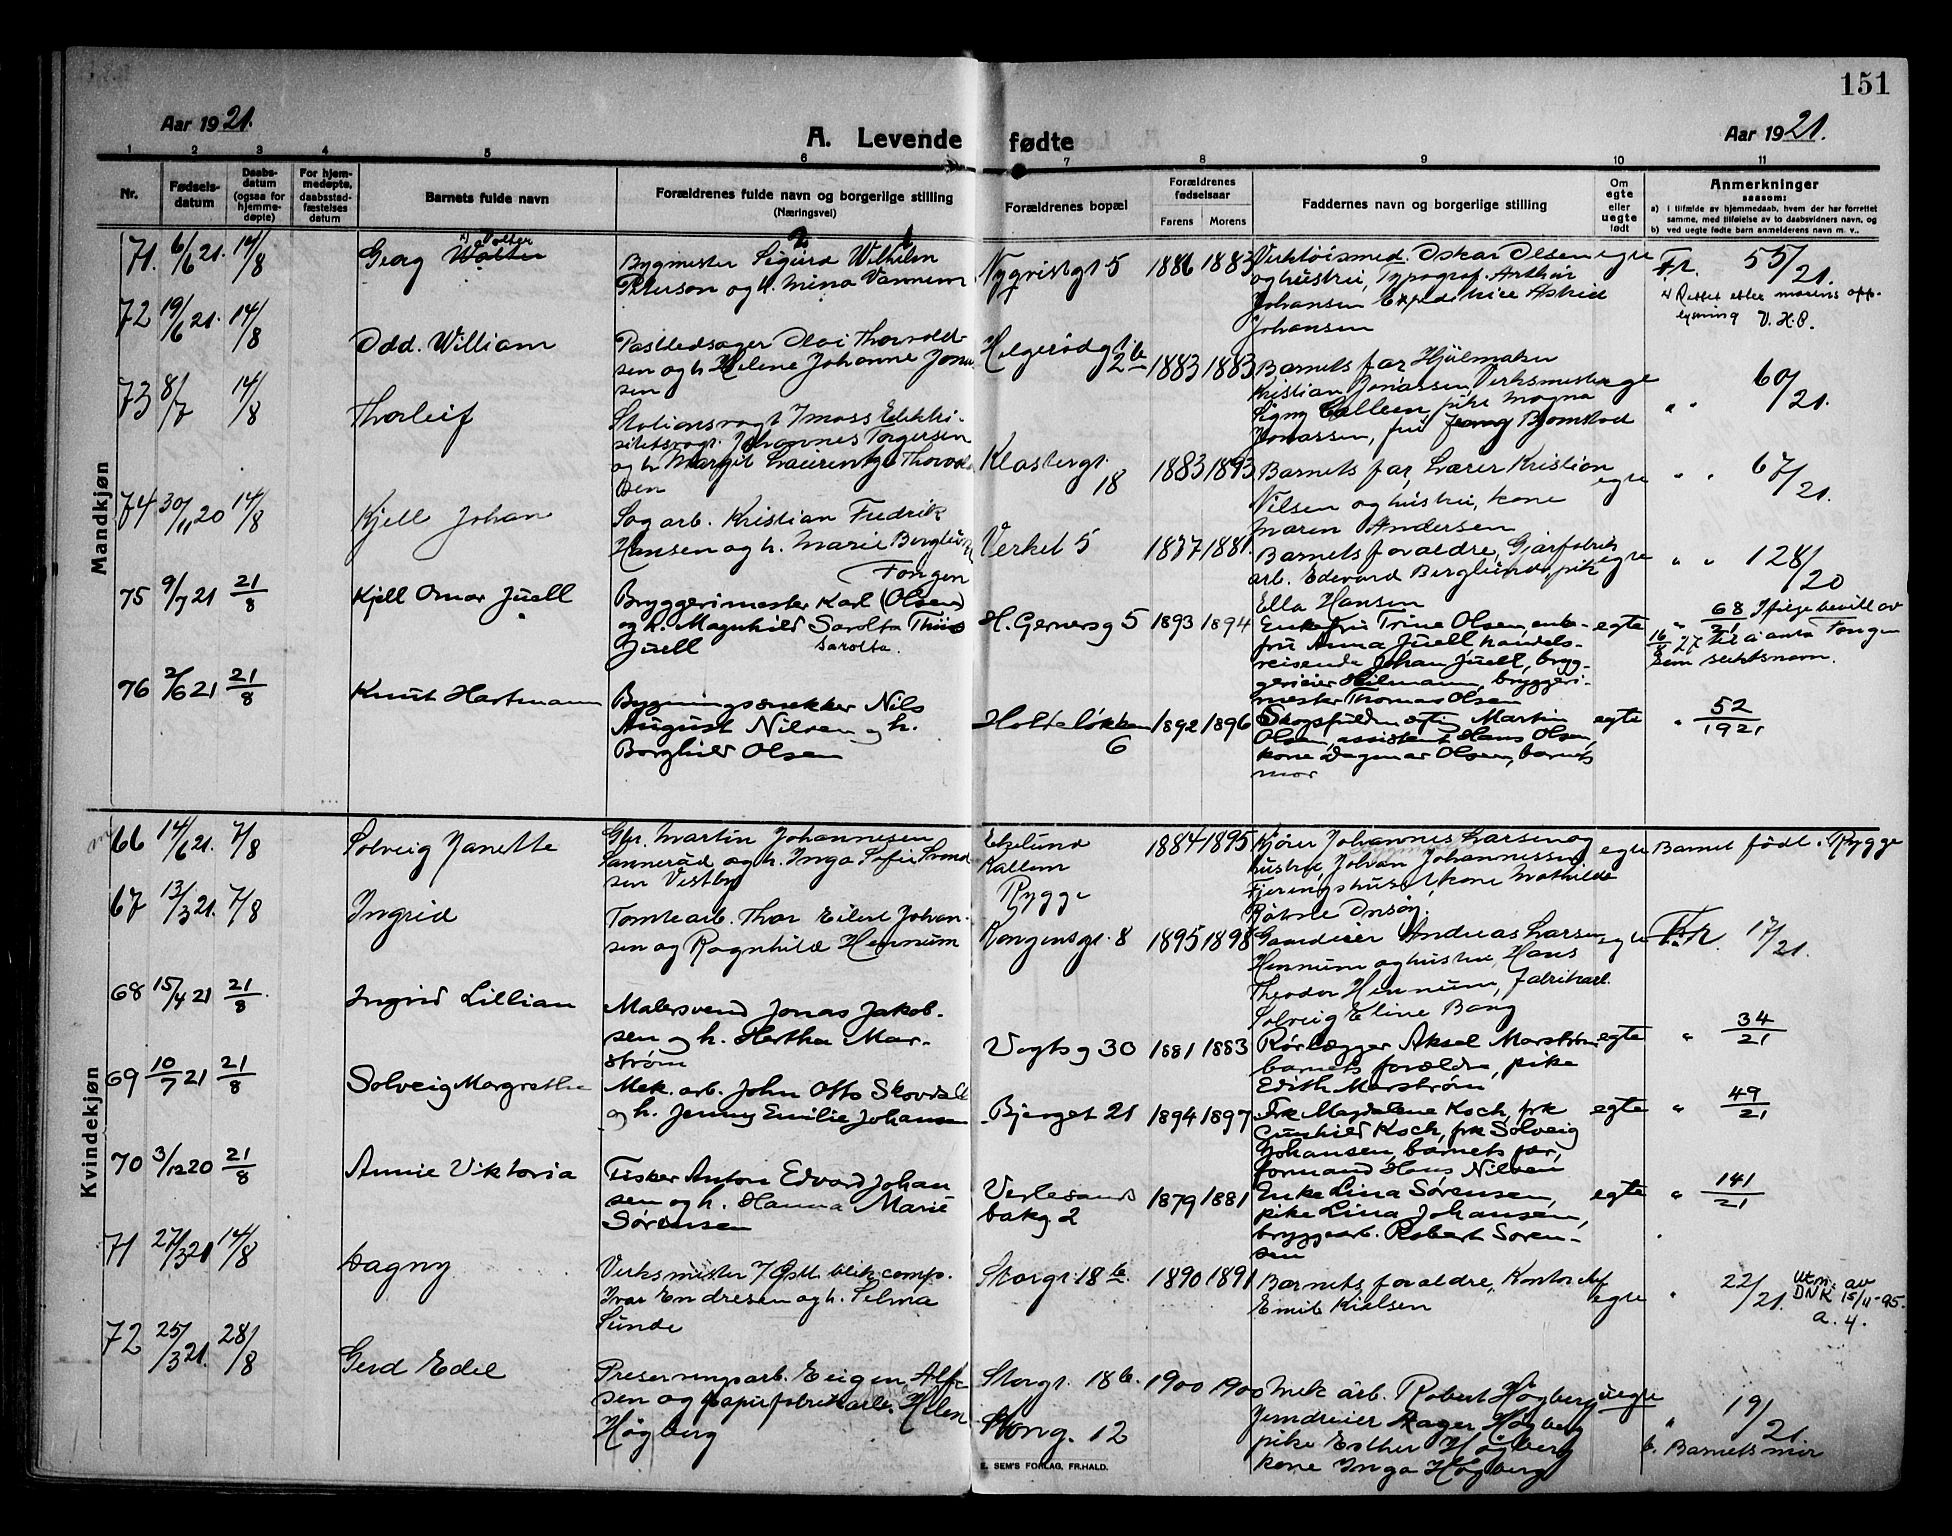 151
Aar 1921.
A. Levende fødte
Aar 1921.
1 2 3 4 5 6 7 8 9 10 11
Nr.
Fødsels-
datum
Daabs-
datum
(ogsaa for
hjemme-
døpte)
For hjem-
medøpte,
daabsstad-
fæstelses
datum
Barnets fulde navn
Forældrenes fulde navn og borgerlige stilling
(Næringsvei)
Forældrenes bopæl
Forældrenes
fødselsaar
Farens Morens
Faddernes navn og borgerlige stilling
Om
egte
eller
uegte
født
Anmerkninger
saasom:
a) i tilfælde av hjemmedaab, hvem der har forrettet
samme, med tilføielse av to daabsvidners navn, og
b) ved uegte fødte barn anmelderens navn m. v..
Mandkjøn
71. 6/6 21. 14/8
Georg Walter
Volter
Bygmester Sigurd Wilhelm
Peterson og h. Mina Vannem
Nyqvistgt 5
1886 1883
Verktøismed. Oskar Olsen
og hustru, Typograf. Arthur
Johansen Expeditrice Astrid
Johansen
egte
Fr. 55/21.
Rettet efter morens opp-
lysning V.H.O.
72 19/6 21. 14/8
Odd. William
Postledsager Olai Thorvald-
sen og h Helene Johanne Jonas
sen
Helgerødgt
2 b
1883 1883
Barnets far Hjulmaker
Kristian Jonassen, Verksmester
Signy Galleen, pike Magna
Jonassen, fru Bjørnstad
" " 60/21.
73 8/7 14/8
Thorleif
Stationsvagt Moss Elektri-
sitetsvagt. Johannes Torgersen
og h Margit Laurentze Thorvald
sen
Klostergt.
18
1883 1893
Barnets far, Lærer Kristian
Nilsen og hustru, kone
Maren Andersen
egte
" " 67/21.
74 30/11 20 14/8
Kjell Johan
Sagarb. Kristian Fredrik
Hansen og h. Marie Berglund
Verket 5
1877 1881.
Barnets foraldre, Gjærfabrik
arb. Edevard Berglund, pike
Ella Hansen
egte
" " 128/20
75 9/7 21 21/8
Kjell Omar Juell
Fongen
Bryggerimester Karl (Olsen)
og h. Magnhild Sarolta Thiis
Juell Sarolta.
H. Gernersg 5
1893 1894
Enkefru Trine Olsen, enke-
fru Anna Juell, handels-
reisende Johan Juell, bryg-
gerieier Heilmann, bryggeri-
mester Thomas Olsen
egte
" 68/21 Ifølge bevill av
16/8 27 til å anta Fongen
som slektsnavn.
76 2/6 21 21/8
Knut Hartmann
Bygningssnekker Nils
August Nilsen og h.
Borghild Olsen
Holteløkken
6
1892 1896
Skogsfuldmægtig Martin
Olsen, assistent Hans Olsen,
kone Dagmar Olsen, barnets
mor
egte
" 52/1921
Kvindekjøn
66 14/6 21. 7/8
Solveig Janette
Gbr. Martin Johannesen
Sannerød og h. Inga Sofie Svend
sen Vestby
Ekelund
Kallum
Rygge
1884 1895
Kjører Johannes Larsen og
hustru, Johan Johannessen
Fjeringshuset, kone Mathilde
egte
Barnet født i Rygge
67 13/3 21. 7/8
Ingrid
Tomtearb. Thor Eilert Johan-
sen og Ragnhild Hennum
Kongensgt. 8
1895 1898
Gaardeier Andreas Larsen
Hennum og hustru, Hans
Theodor Hennum, fabrikarb.
Solveig Eline Bang
egte
Fr. 17/21.
68 15/4 21 21/8
Ingrid Lillian
Malersvend Jonas Jakob-
sen og h. Hertha Mar-
strøm
Vogtsg 30
1881 1883
Rørlægger Aksel Marstrøm
barnets forældre, pike
Edith Marstrøm
egte
" 34/21
69 10/7 21 21/8
Solveig Margrethe
Mek. arb. John Otto Skovdahl
og h. Jenny Emilie Johansen
Bjerget 21
1894 1897
Frk Magdalene Koch, frk
Gunhild Koch, frk Solveig
Johansen, barnets far,
formand Hans Nilsen
egte
" 49/21
70 3/12 20 21/8
Annie Viktoria
Fisker Anton Edvard Johan
sen og h. Hanna Marie
Sørensen
Verlesands
bakg 2
1879 1881
Enke Lina Sørensen,
pike Lina Johansen,
bryggearb. Robert Søren-
sen
egte
" 141/21
71 27/3 21 14/8
Dagny
Verksmester blik. comp.
Ivar Endresen og h. Selma
Sunde
Storgt. 18 b.
1890 1891
Barnets foraldre, Kontorchef
Emil Kielsen
egte
" 22/21. Utm. av
DNK 15/11-95.
a. 4.
72 25/3 21. 28/8
Gerd Edel
Preserveringsarb. Eugen Alf-
sen og papirfabrikarb. Helen
Høgberg
Storgt. 18 b.
Storg. 12
1900 1900
Mek arb. Robert Høgberg
Jerndreier Aager Høgberg
pike Esther Høgberg
kone Inga Høgberg
uegte
" 19/21.
b. Barnets mor
E. SEM'S FORLAG, FR.HALD.